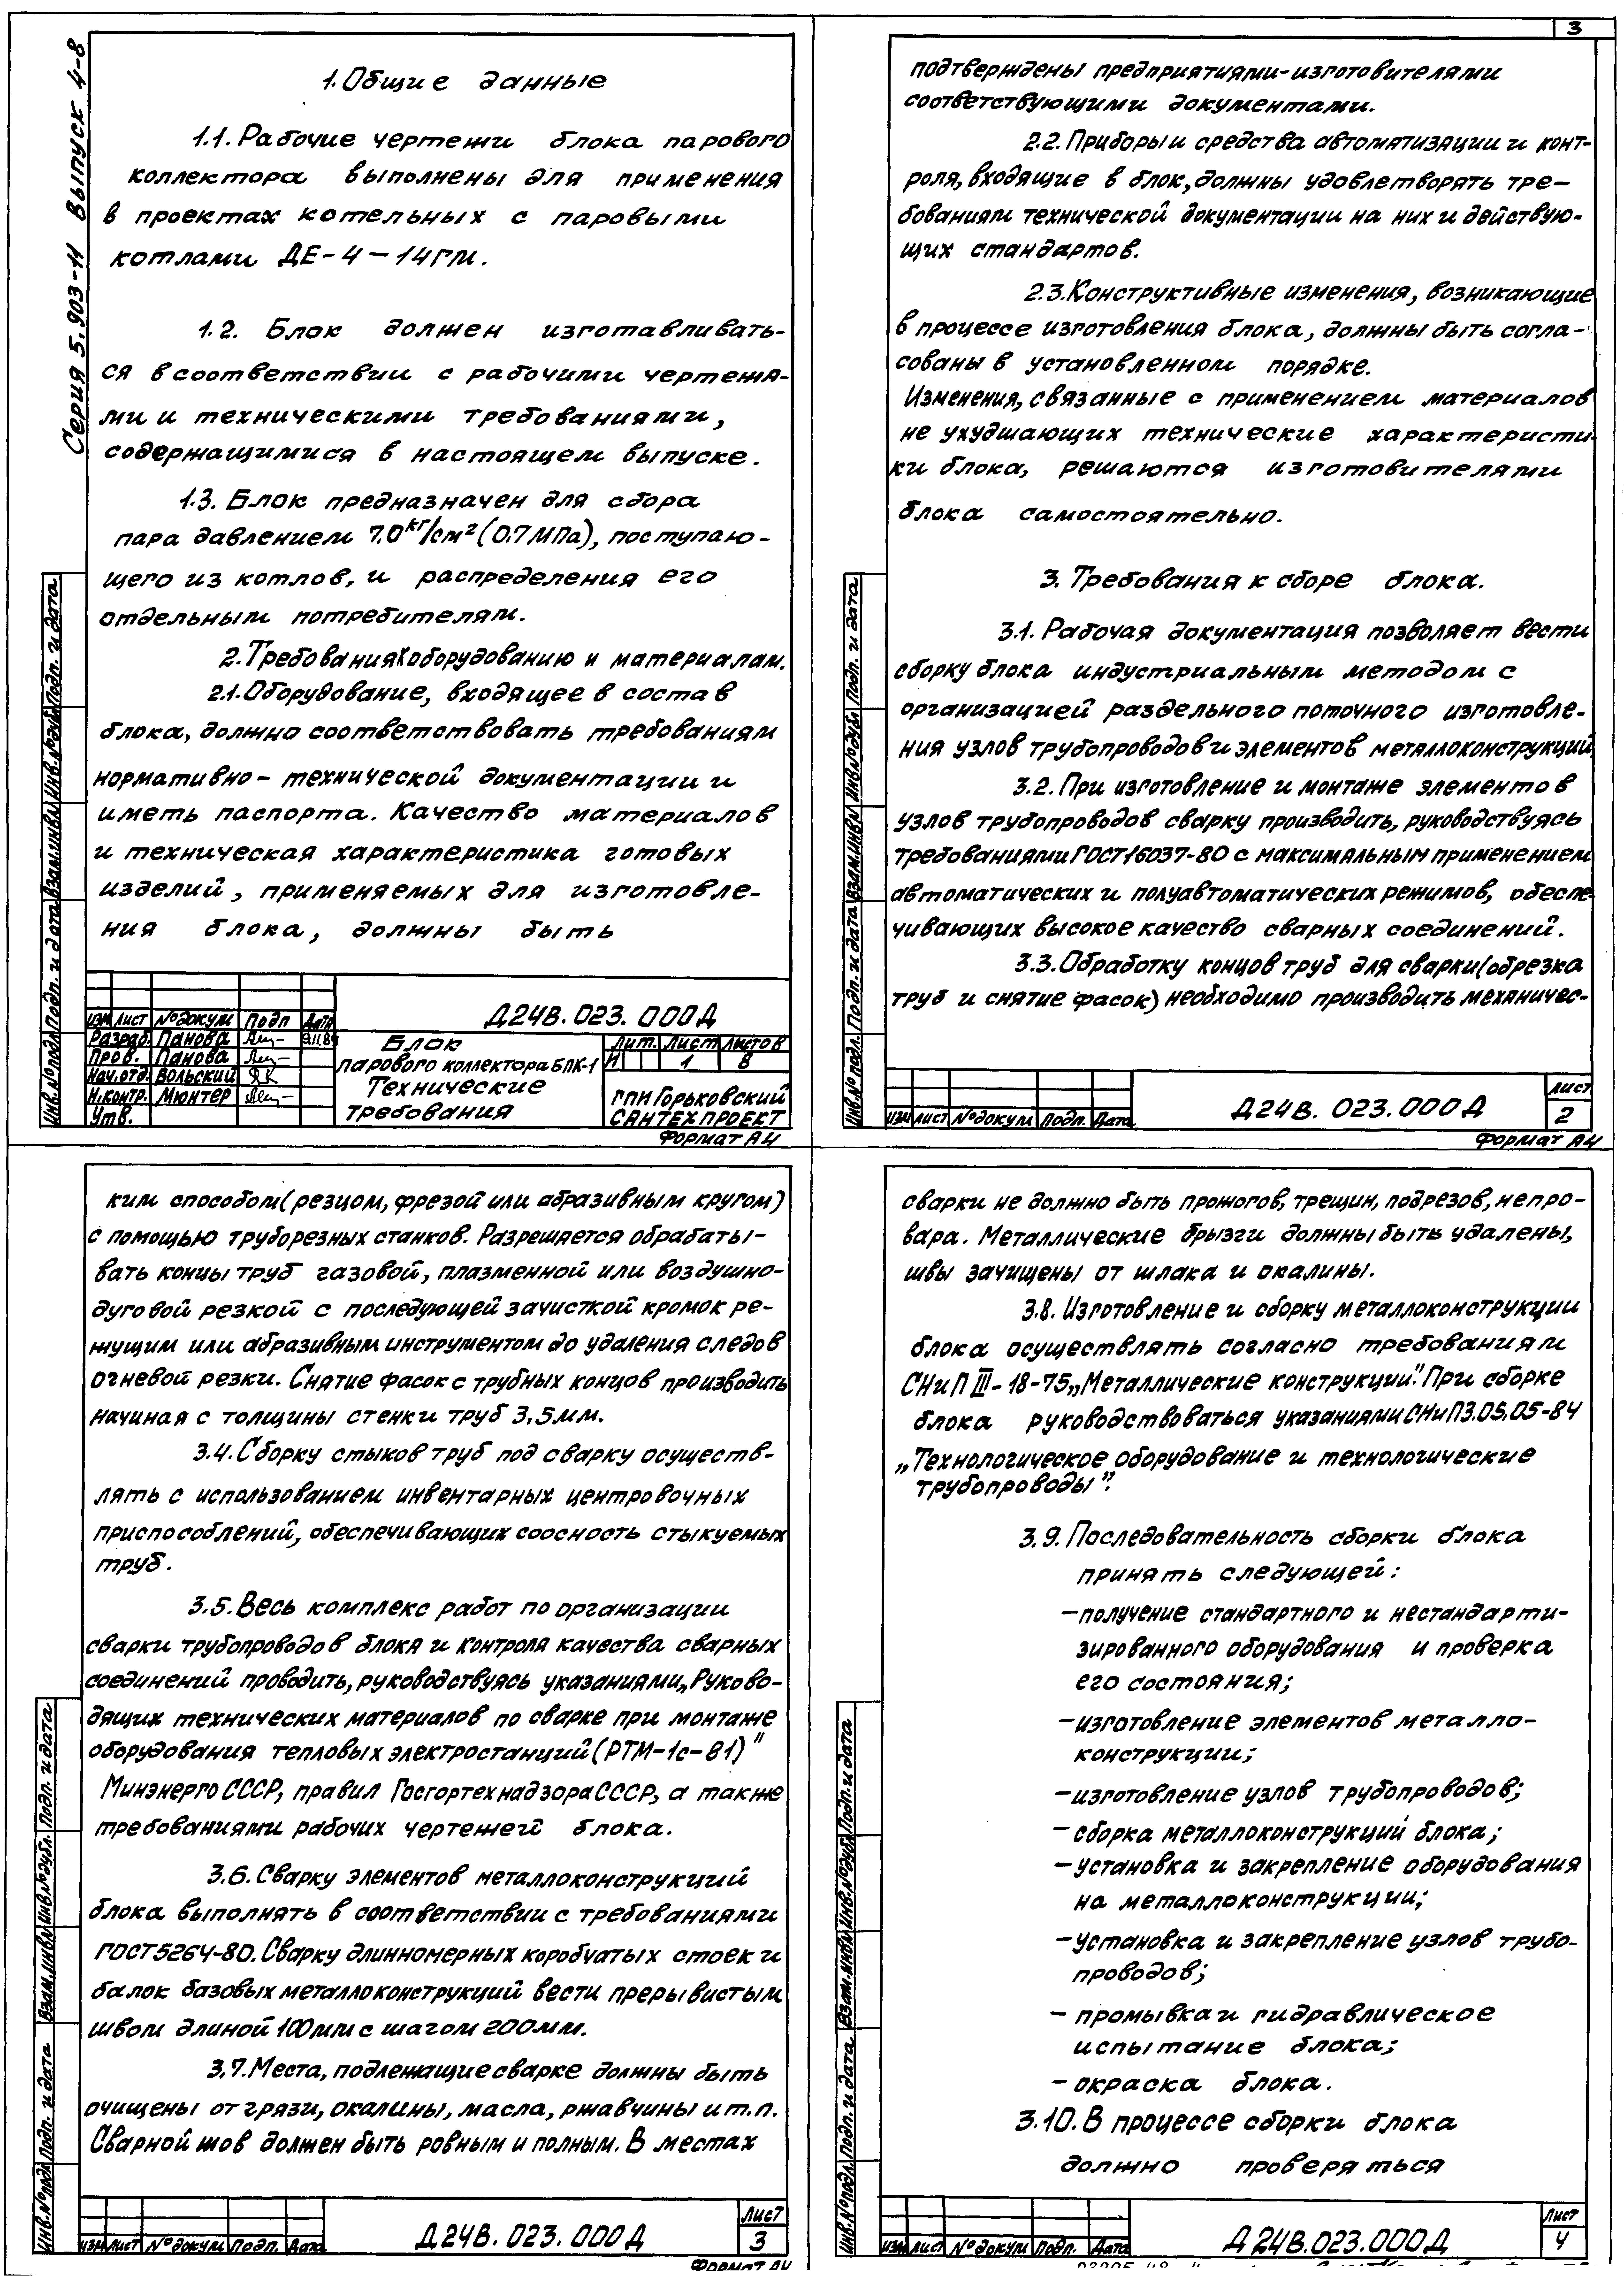 Серия 5.903-11 Выпуск 4-8
1. Общие данные
1.1. Рабочие чертежи блока парового
коллектора выполнены для применения
в проектах котельных с паровыми
котлами ДЕ-4-14ГМ.
1.2. Блок должен изготавливать-
ся в соответствии с рабочими чертежа-
ми и техническими требованиями,
содержащимися в настоящем выпуске.
1.3. Блок предназначен для сбора
пара давлением 7.0 кг/см² (0.7 МПа), поступаю-
щего из котлов, и распределения его
отдельным потребителям.
2. Требования к оборудованию и материалам.
2.1. Оборудование, входящее в состав
блока, должно соответствовать требованиям
нормативно-технической документации и
иметь паспорта. Качество материалов
и техническая характеристика готовых
изделий, применяемых для изготовле-
ния блока, должны быть
Инв.№ подл. Подп. и дата Взам.инв.№ Инв.№ дубл. Подп. и дата
Изм Лист № докум Подп Дата
Разраб. Панова
Пров. Панова
Нач.отд. Вольский
Н.контр. Мюнтер
Утв.
Д24В.023.000Д
Блок
парового коллектора БПК-1
Технические
требования
Лит. Лист Листов
И 1 8
ГПИ Горьковский
САНТЕХПРОЕКТ
Формат А4
3
подтверждены предприятиями-изготовителями
соответствующими документами.
2.2. Приборы и средства автоматизации и конт-
роля, входящие в блок, должны удовлетворять тре-
бованиям технической документации на них и действую-
щих стандартов.
2.3. Конструктивные изменения, возникающие
в процессе изготовления блока, должны быть согла-
сованы в установленном порядке.
Изменения, связанные с применением материалов
не ухудшающих технические характеристи-
ки блока, решаются изготовителями
блока самостоятельно.
3. Требования к сборе блока.
3.1. Рабочая документация позволяет вести
сборку блока индустриальным методом с
организацией раздельного поточного изготовле-
ния узлов трубопроводов и элементов металлоконструкций.
3.2. При изготовление и монтаже элементов
узлов трубопроводов сварку производить, руководствуясь
требованиями ГОСТ 16037-80 с максимальным применением
автоматических и полуавтоматических режимов, обеспе-
чивающих высокое качество сварных соединений.
3.3. Обработку концов труб для сварки (обрезка
труб и снятие фасок) необходимо производить механичес-
Инв.№ подл. Подп. и дата Взам.инв.№ Инв.№ дубл. Подп. и дата
Изм Лист № докум Подп. Дата
Д24В.023.000Д
Лист
2
Формат А4
ким способом (резцом, фрезой или абразивным кругом)
с помощью труборезных станков. Разрешается обрабаты-
вать концы труб газовой, плазменной или воздушно-
дуговой резкой с последующей зачисткой кромок ре-
жущим или абразивным инструментом до удаления следов
огневой резки. Снятие фасок с трубных концов производить
начиная с толщины стенки труб 3,5мм.
3.4. Сборку стыков труб под сварку осуществ-
лять с использованием инвентарных центровочных
приспособлений, обеспечивающих соосность стыкуемых
труб.
3.5. Весь комплекс работ по организации
сварки трубопроводов блока и контроля качества сварных
соединений проводить, руководствуясь указаниями „Руково-
дящих технических материалов по сварке при монтаже
оборудования тепловых электростанций (РТМ-1с-81)"
Минэнерго СССР, правил Госгортехнадзора СССР, а также
требованиями рабочих чертежей блока.
3.6. Сварку элементов металлоконструкций
блока выполнять в соответствии с требованиями
ГОСТ 5264-80. Сварку длинномерных коробчатых стоек и
балок базовых металлоконструкций вести прерывистым
швом длиной 100мм с шагом 200мм.
3.7. Места, подлежащие сварке должны быть
очищены от грязи, окалины, масла, ржавчины и т.п.
Сварной шов должен быть ровным и полным. В местах
Инв.№ подл. Подп. и дата Взам.инв.№ Инв.№ дубл. Подп. и дата
Изм Лист № докум Подп. Дата
Д24В.023.000Д
Лист
3
Формат А4
сварки не должно быть прожогов, трещин, подрезов, непро-
вара. Металлические брызги должны быть удалены,
швы зачищены от шлака и окалины.
3.8. Изготовление и сборку металлоконструкции
блока осуществлять согласно требованиям
СНиП III-18-75 „Металлические конструкции". При сборке
блока руководствоваться указаниями СНиП 3.05.05-84
„Технологическое оборудование и технологические
трубопроводы".
3.9. Последовательность сборки блока
принять следующей:
- получение стандартного и нестандарти-
зированного оборудования и проверка
его состояния;
- изготовление элементов металло-
конструкции;
- изготовление узлов трубопроводов;
- сборка металлоконструкций блока;
- установка и закрепление оборудования
на металлоконструкции;
- установка и закрепление узлов трубо-
проводов;
- промывка и гидравлическое
испытание блока;
- окраска блока.
3.10. В процессе сборки блока
должно проверяться
Инв.№ подл. Подп. и дата Взам.инв.№ Инв.№ дубл. Подп. и дата
Изм Лист № докум Подп. Дата
Д24В.023.000Д
Лист
4